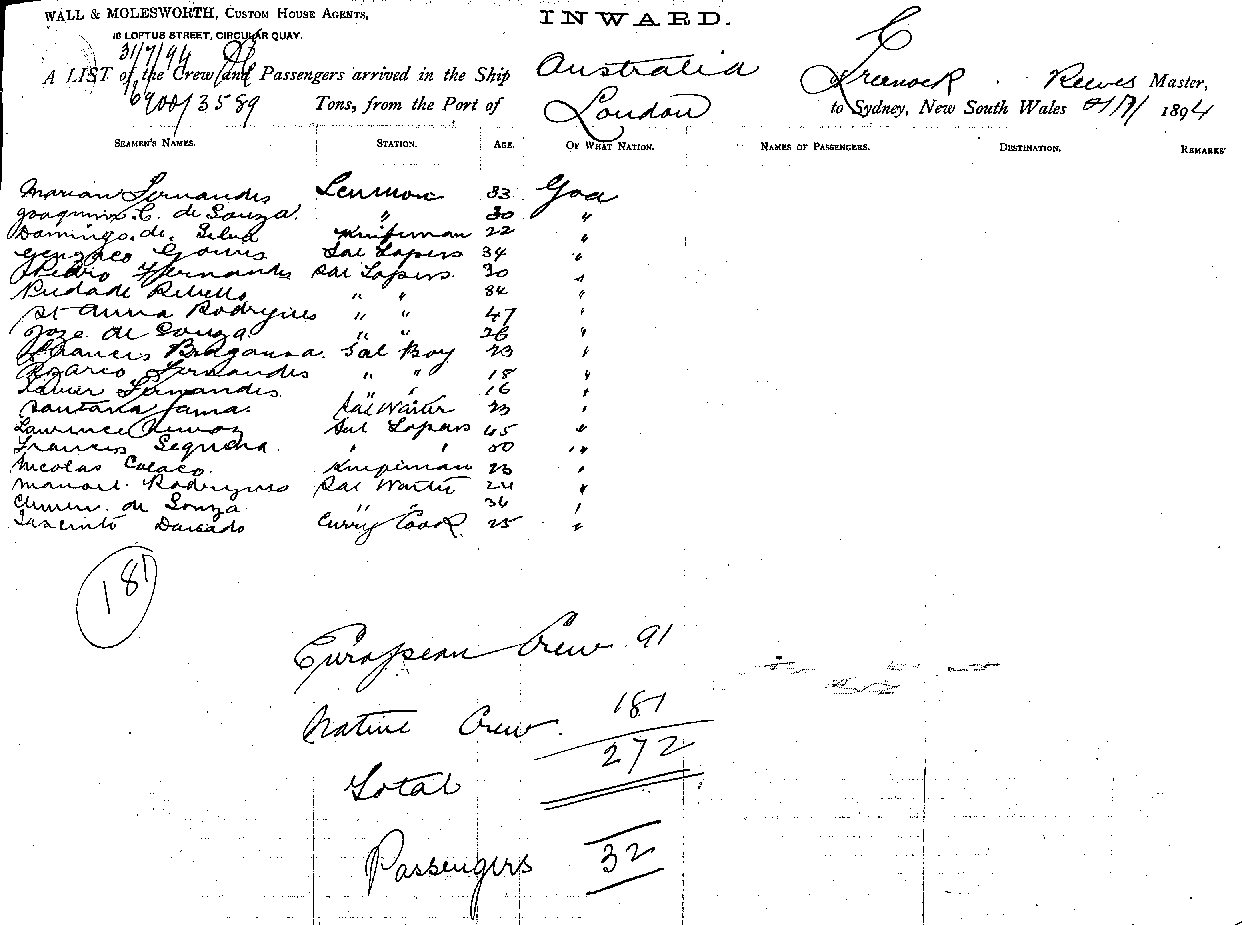 WALL & MOLESWORTH, CUSTOM HOUSE AGENTS,
16 LOFTUS STREET, CIRCULAR QUAY.
INWARD.
31/7/94
A LIST of the Crew and Passengers arrived in the Ship Australia of Greenock. Reeves Master,
6900/3589 Tons, from the Port of London to Sydney, New South Wales 1894
SEAMEN'S NAMES. STATION. AGE. OF WHAT NATION. NAMES OF PASSENGERS. DESTINATION. REMARKS
Marian Fernandes 33 Goa
Joaquim C. de Souza " 30 "
Domingo de Silva 22 "
Gomes Sal Lopers 34 "
Pedro Fernandes Sal Lopers 30 "
Piedade Rebello " " 34 "
St Anna Rodrigues " " 47 "
Joze de Souza " " 26 "
Francis Braganza Sal Boy 23 "
Fernandes " " 18 "
Xavier Fernandes " " 16 "
Santana Gama Sal Waiter 23 "
Lawrence Sal Lopers 45 "
Francis Sequeira " " 50 "
Nicolas Colaco 23 "
Manoel Rodrigues Sal Waiter 24 "
de Souza " " 36 "
Jacinto Curry Cook 25 "
181
European Crew 91
Native Crew 181
272
Total
Passengers 32